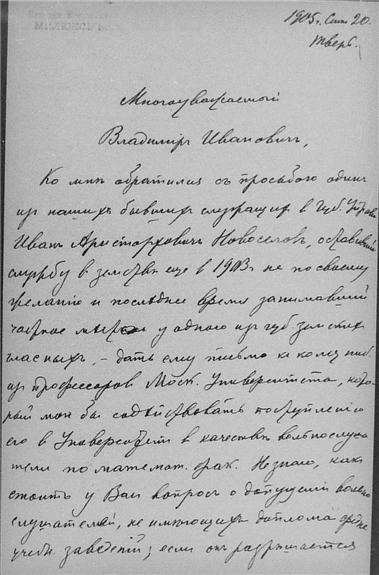 1905 г. Сент. 20.
Тверь.
Многоуважаемый
Владимиръ Ивановичъ,
Ко мнѣ обратился съ просьбою одинъ
изъ нашихъ бывшихъ служащихъ в Губ. Управѣ
Иванъ Аристарховичъ Новоселовъ, оставившій
службу в земствѣ еще в 1903 г не по своему
желанію и последнее время занимавшій
частное место у одного изъ губ. земскихъ
гласныхъ, – дать ему письмо къ кому ниб.
изъ профессоровъ Моск. Университета, кото-
рый мог бы содѣйствовать поступленію
его в Университетъ в качествѣ вольнослуша-
теля по математ. фак. Не знаю, какъ
стоитъ у Вас вопросъ о допущеніи вольно-
слушателей, не имеющихъ диплома средне
учебн. заведеній; если он разрѣшается